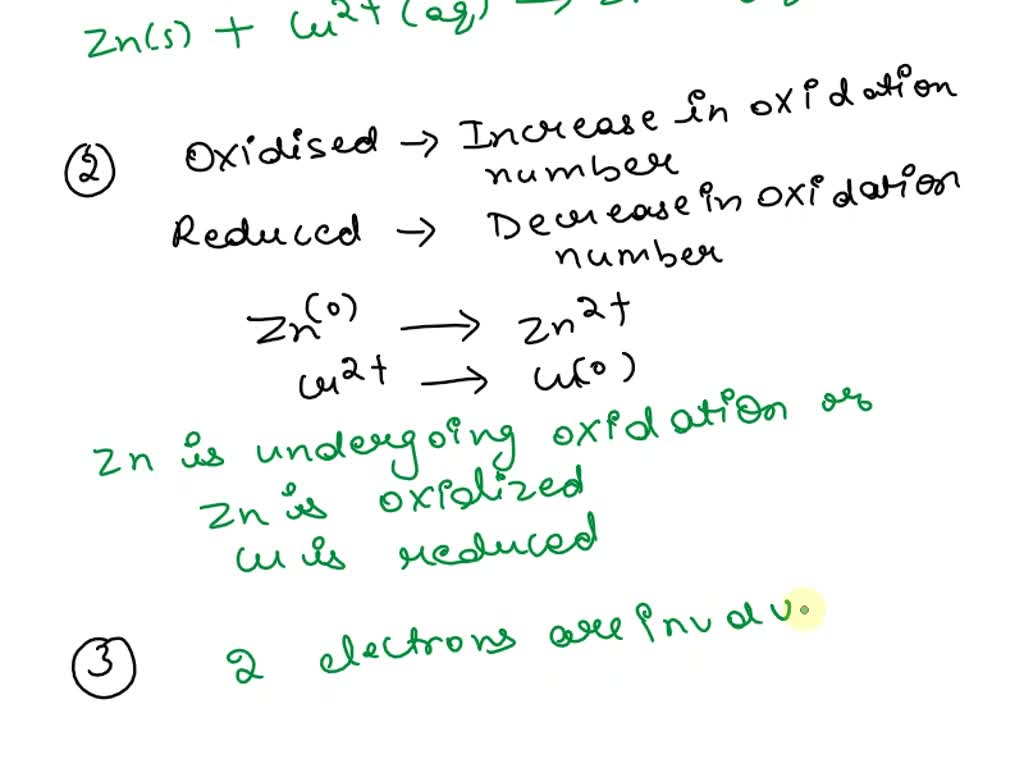 Zn(s) + Cu2+ (aq) →
② Oxidised → Increase in oxidation
number
Reduced → Decrease in oxidation
number
Zn(0) → Zn2+
Cu2+ → Cu(0)
Zn is undergoing oxidation or
Zn is oxidized
Cu is reduced
③ 2 electrons are involv